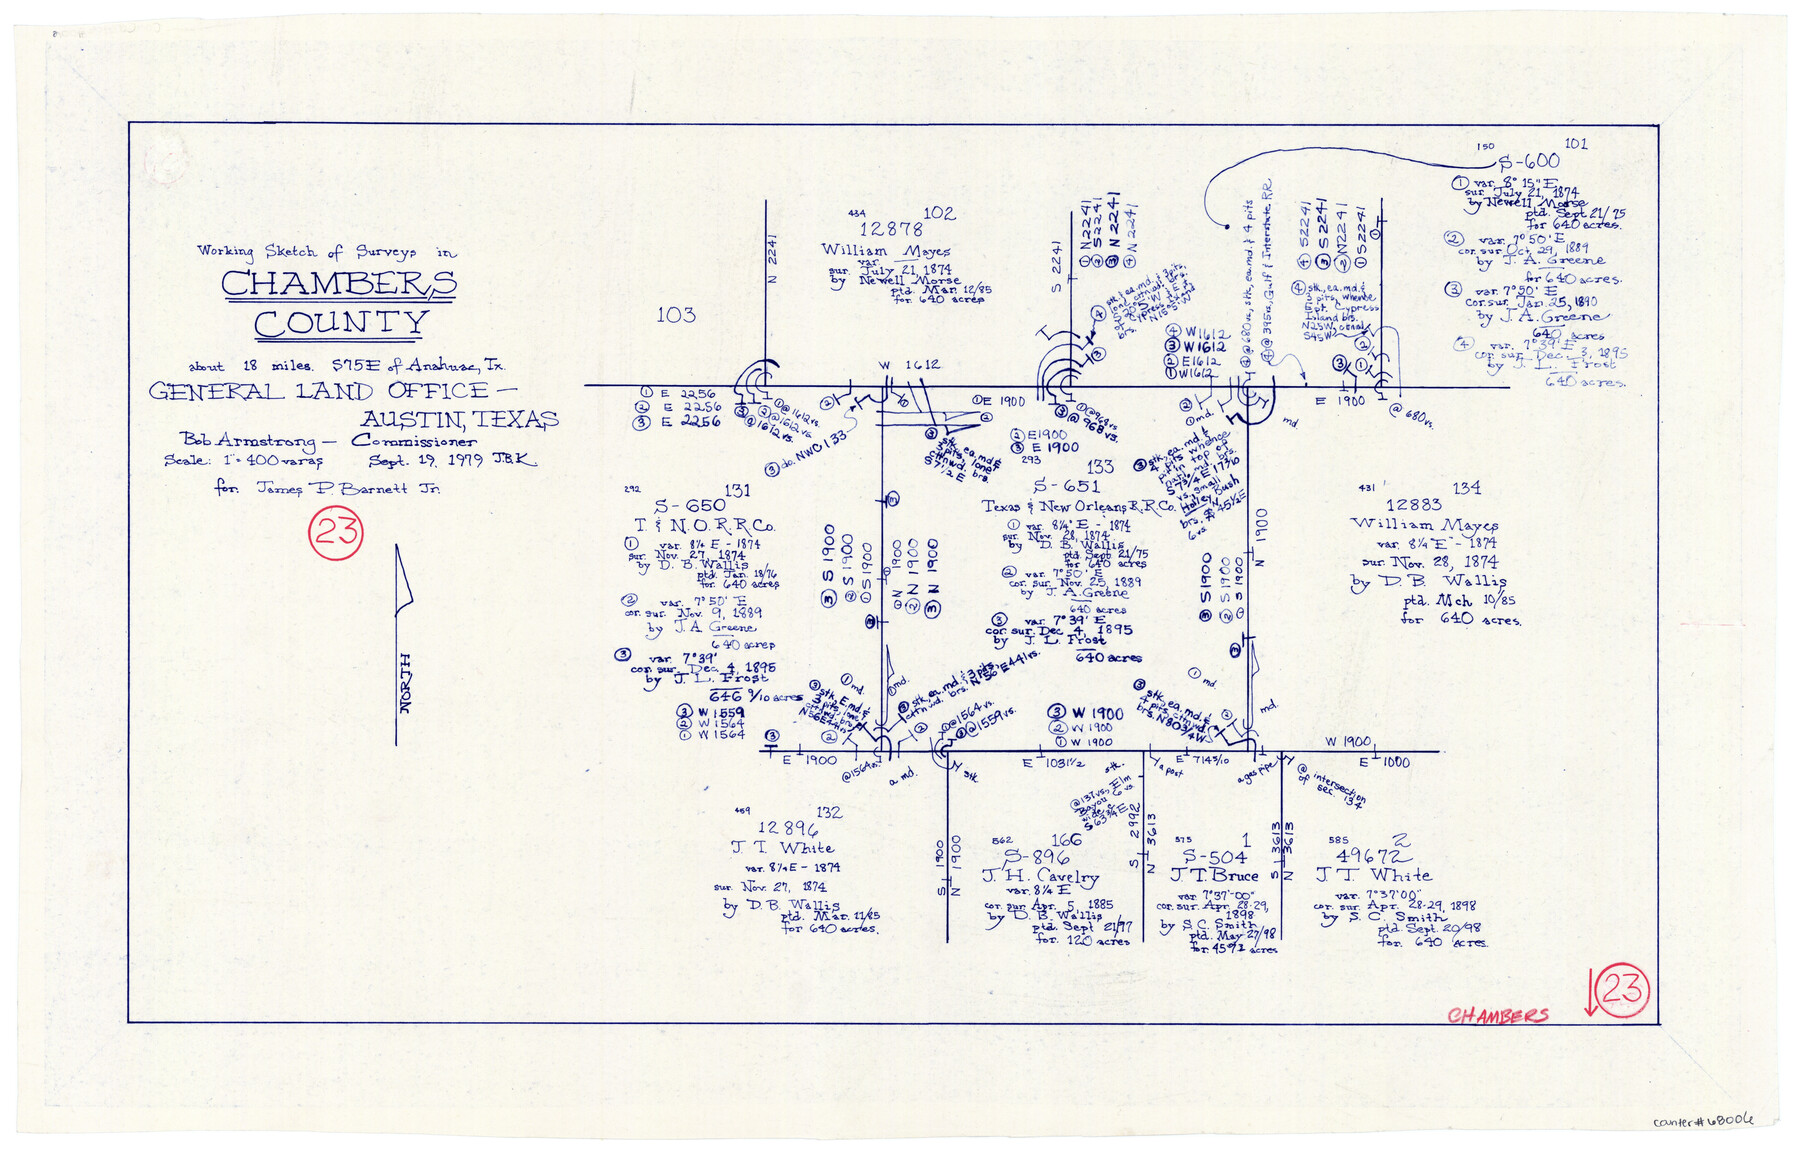 Working Sketch of Surveys in
CHAMBERS
COUNTY
about 18 miles. S75E of Anahuac, Tx.
GENERAL LAND OFFICE —
AUSTIN, TEXAS
Bob Armstrong — Commissioner
Scale: 1" = 400 varas Sept. 19, 1979 J.B.K.
for James P. Barnett Jr.
23
NORTH
103
434 102
12878
William Mayes
var.
sur. July 21, 1874
by Newell Morse
ptd. Mar. 12/85
for 640 acres
N 2241
S 2241
① N 2241
② S 2241
③ N 2241
④ N 2241
④ @ 680 vs, stk, ea. md. & 4 pits
④ @ 395 vs, Gulf & Interstate RR
④ S 2241
③ S 2241
② N 2241
① S 2241
④ stk, ea. md. &
3 pits, whence
E. pt. Cypress
Island brs.
N25W
S45W
150 101
S-600
① var. 8° 15" E
sur. July 21, 1874
by Newell Morse
ptd. Sept 21/75
for 640 acres.
② var. 7° 50' E
cor. sur. Oct. 29, 1889
by J. A. Greene
for 640 acres.
③ var. 7° 50' E
cor. sur. Jan. 25, 1890
by J. A. Greene
640 acres
④ var. 7° 39' E
cor. sur. Dec. 3, 1895
by J. L. Frost
640 acres.
① E 2256
② E 2256
③ E 2256
① @ 1612 vs.
② @ 1612 vs.
③ @ 1612 vs.
W 1612
③ do. NWC 133
① E 1900
② E 1900
③ E 1900
① @ 968 vs
③ @ 968 vs.
④ W 1612
③ W 1612
② E 1612
① W 1612
① md.
md.
E 1900
@ 680 vs.
③ stk, ea. md. &
3 pits, lone
cttnwd. brs.
S 71/2 E
292 131
S-650
T. & N.O.R.R.Co.
① var. 8¼ E - 1874
sur. Nov. 27, 1874
by D. B. Wallis
ptd. Jan. 18/76
for 640 acres
② var. 7° 50' E
cor. sur. Nov. 9, 1889
by J. A. Greene
640 acres
③ var. 7° 39'
cor. sur. Dec. 4, 1895
by J. L. Frost
646 9/10 acres
③ W 1559
② W 1564
① W 1564
③ S 1900
② S 1900
① S 1900
① N 1900
② N 1900
③ N 1900
293 133
S-651
Texas & New Orleans R.R.Co.
① var. 8¼° E - 1874
sur. Nov. 28, 1874
by D. B. Wallis
ptd. Sept 21/75
for 640 acres
② var. 7° 50' E
cor. sur. Nov. 25, 1889
by J. A. Greene
640 acres
③ var. 7° 39' E
cor. sur. Dec. 4, 1895
by J. L. Frost
640 acres
③ S 1900
② S 1900
① S 1900
N 1900
431 134
12883
William Mayes
var. 8¼ E - 1874
sur. Nov. 28, 1874
by D. B. Wallis
ptd. Mch 10/85
for 640 acres.
① md.
① md.
③ stk, ea. md. & 3 pits,
cttnwd. brs. N 56 E 441 vs.
① @ 1564 vs.
③ @ 1559 vs.
③ W 1900
② W 1900
① W 1900
③ stk, ea. md. &
4 pits, cttnwd.
brs. N 80 3/4 W
① md.
md.
E 1900
@ 1564 vs.
a md.
stk
E 1031 1/2
stk.
a post
E 714 5/10
a gas pipe
W 1900
E 1000
@ intersection
of sec. 134
@ 137 vs, Elm
Bayou 6 vs
wide c
S 63 3/4 E
459 132
12896
J. T. White
var. 8¼ E - 1874
sur. Nov. 27, 1874
by D. B. Wallis
ptd. Mar. 11/85
for 640 acres.
S 1900
N 1900
562 166
S-896
J. H. Cavelry
var. 8¼ E
cor. sur. Apr. 5, 1885
by D. B. Wallis
ptd. Sept 21/97
for 120 acres
S 2992
N 3613
575 1
S-504
J T. Bruce
var. 7°37'-00"
cor. sur. Apr. 28-29,
1898
by S. C. Smith
ptd. May 27/98
S 3613
N 3613
585 2
49672
J T. White
var. 7°37'00"
cor. sur. Apr. 28-29, 1898
by S. C. Smith
ptd. Sept. 20/98
for 640 acres.
CHAMBERS
23
counter# 68006